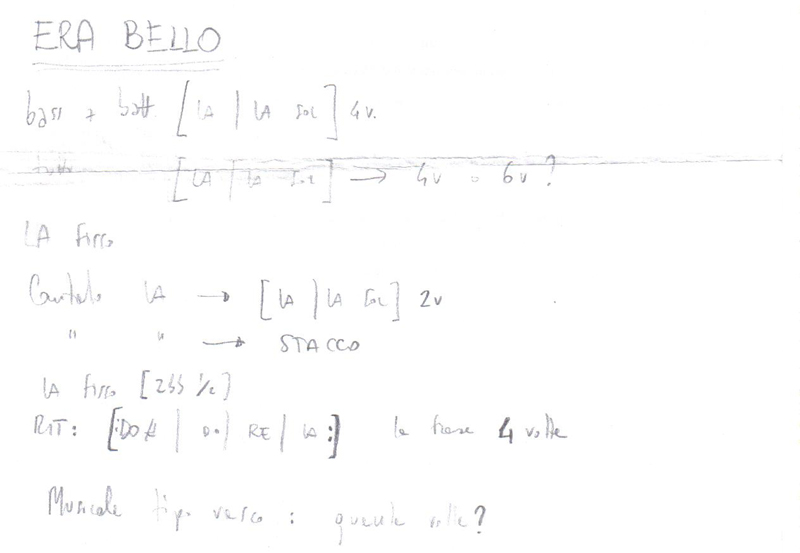 ERA BELLO
bass + batt [LA | LA SOL] 4v.
tutti [LA | LA SOL] → 4v o 6v?
LA fisso
Cantato LA → [LA | LA SOL] 2v
" " → STACCO
LA fisso [ ½]
RIT: [:DO# | DO | RE | LA :] la frase 4 volte
Musicale tipo vasco : quante volte?